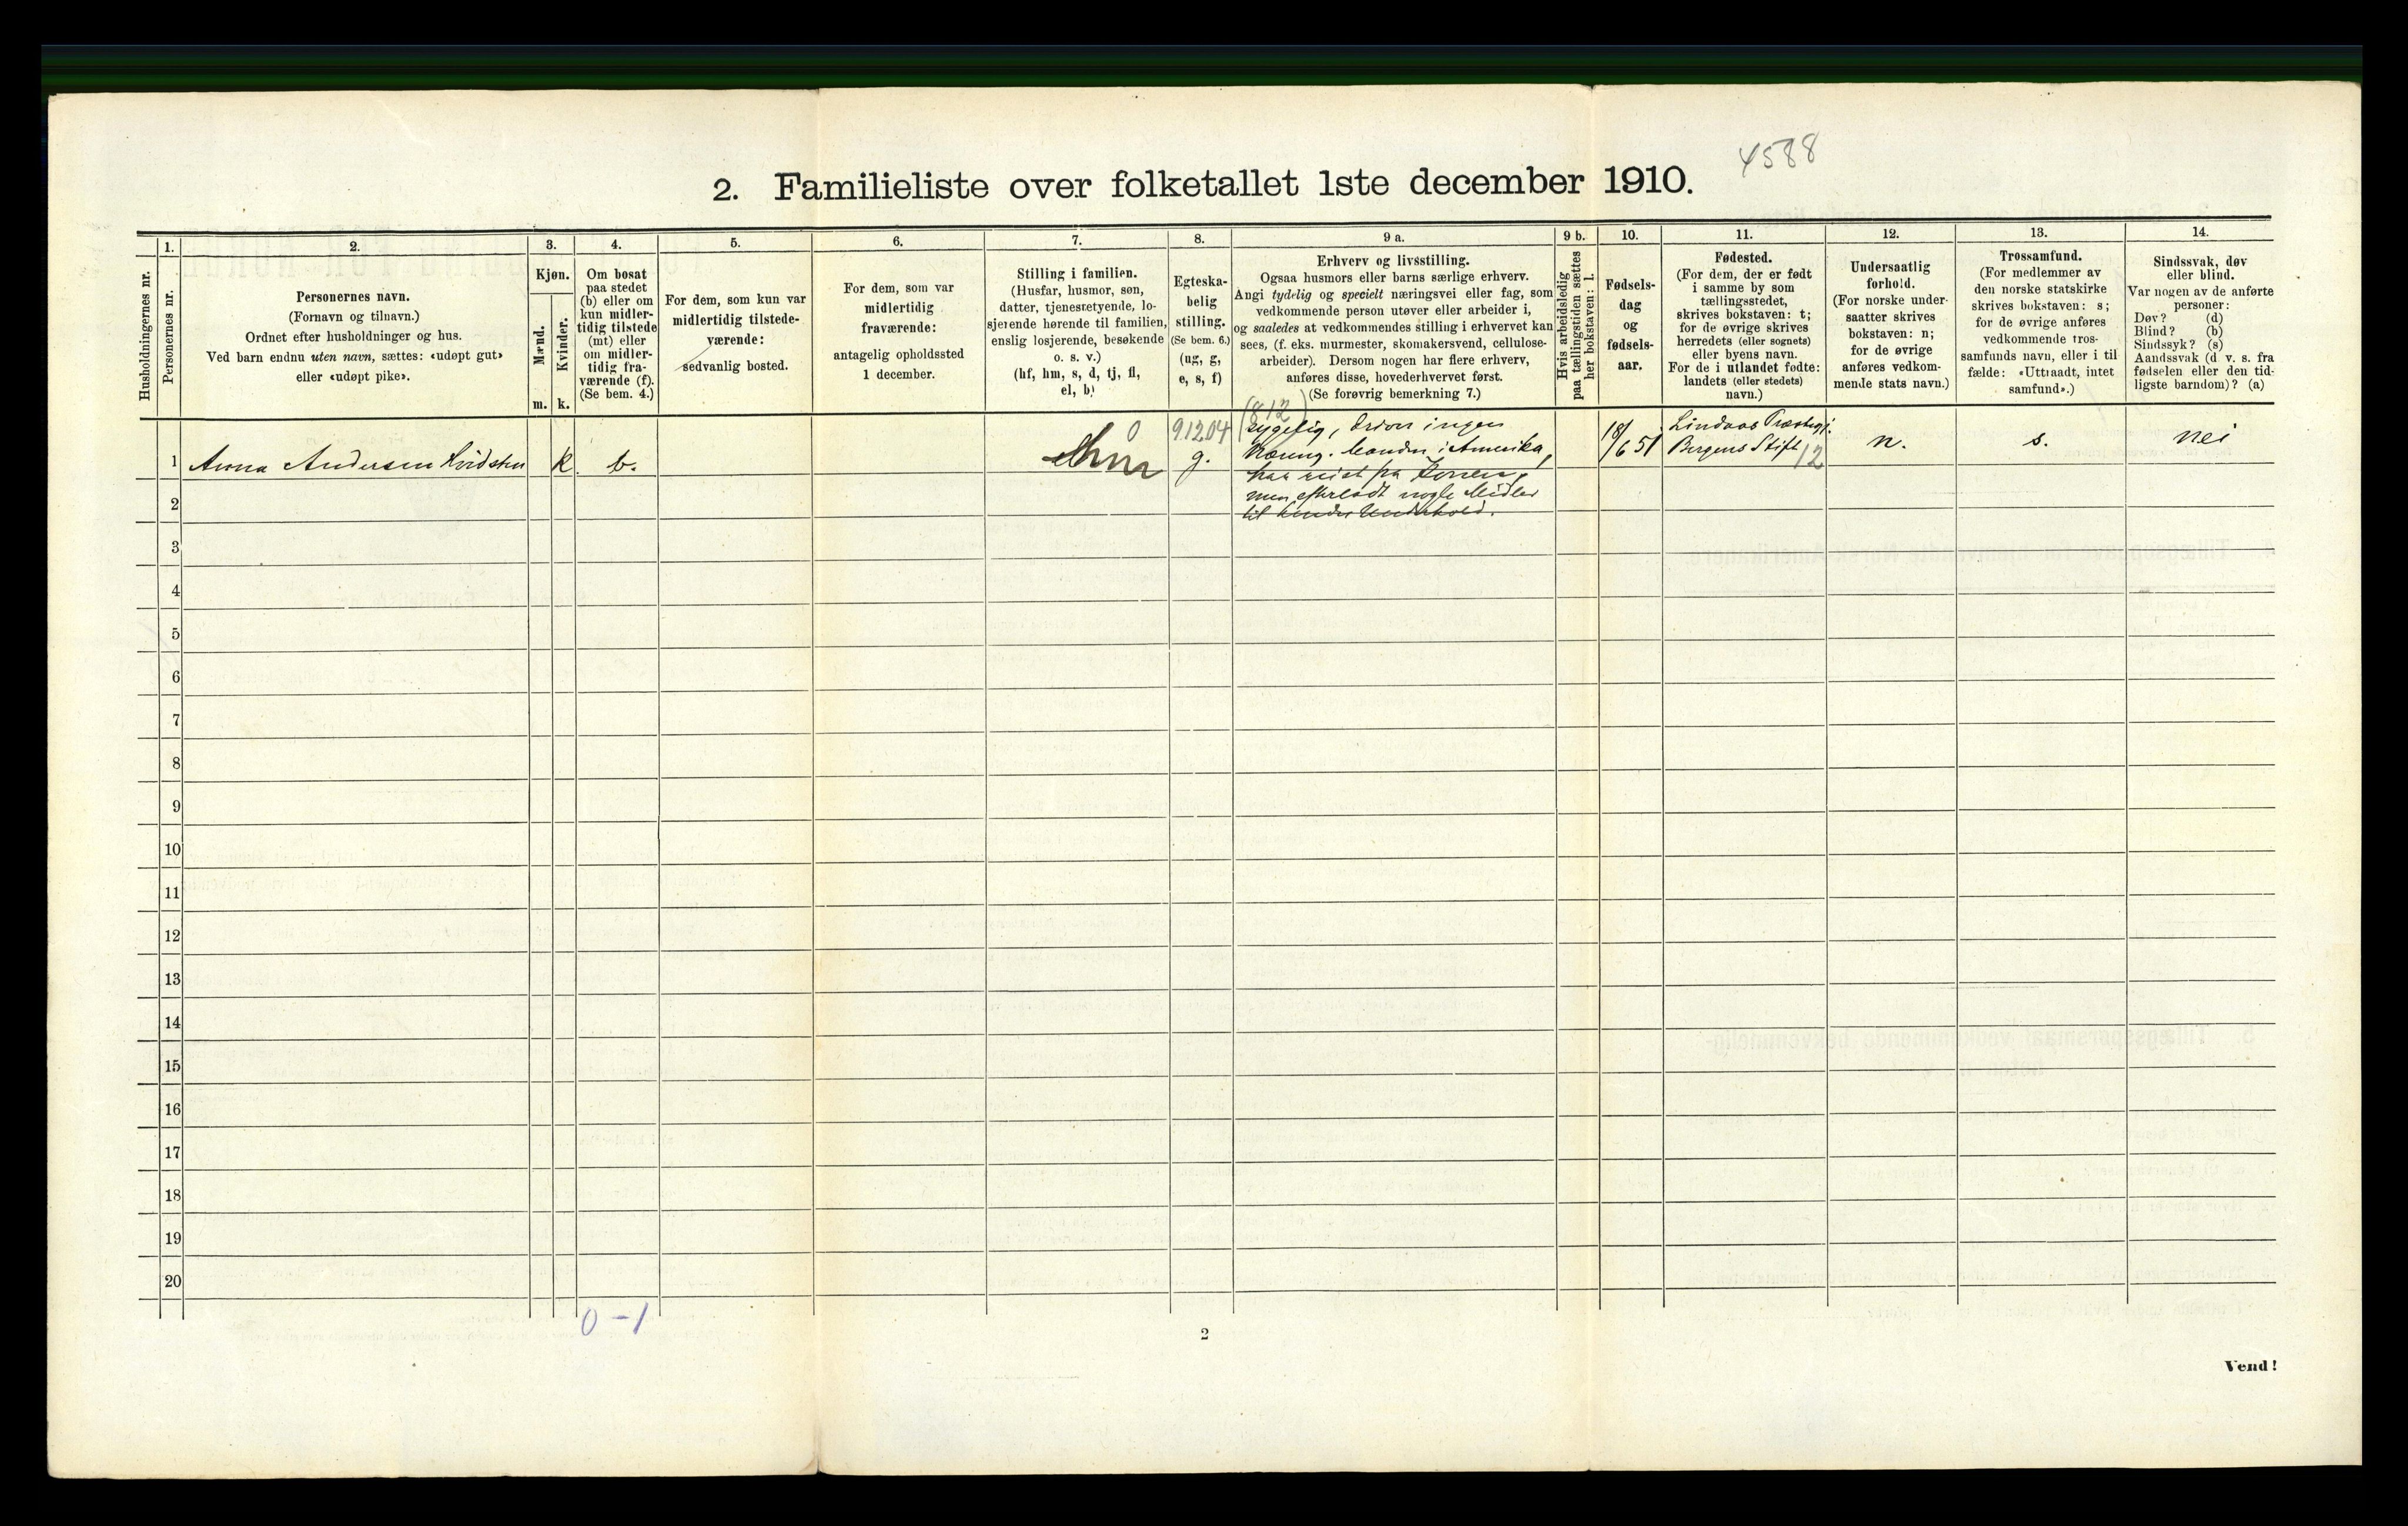 4588
2. Familieliste over folketallet 1ste december 1910.
1. 2. 3. 4. 5. 6. 7. 8. 9 a. 9 b. 10. 11. 12. 13. 14.
Husholdningernes nr.
Personernes nr.
Personernes navn.
(Fornavn og tilnavn.)
Ordnet efter husholdninger og hus.
Ved barn endnu uten navn, sættes: «udøpt gut»
eller «udøpt pike».
Kjøn.
Mænd.
Kvinder.
m. k.
Om bosat
paa stedet
(b) eller om
kun midler-
tidig tilstede
(mt) eller
om midler-
tidig fra-
værende (f).
(Se bem. 4.)
For dem, som kun var
midlertidig tilstede-
værende:
sedvanlig bosted.
For dem, som var
midlertidig
fraværende:
antagelig opholdssted
1 december.
Stilling i familien.
(Husfar, husmor, søn,
datter, tjenestetyende, lo-
sjerende hørende til familien,
enslig losjerende, besøkende
o. s. v.)
(hf, hm, s, d, tj, fl,
el, b)
Egteska-
belig
stilling.
(Se bem. 6.)
(ug, g,
e, s, f)
Erhverv og livsstilling.
Ogsaa husmors eller barns særlige erhverv.
Angi tydelig og specielt næringsvei eller fag, som
vedkommende person utøver eller arbeider i,
og saaledes at vedkommendes stilling i erhvervet kan
sees, (f. eks. murmester, skomakersvend, cellulose-
arbeider). Dersom nogen har flere erhverv,
anføres disse, hovederhvervet først.
(Se forøvrig bemerkning 7.)
Hvis arbeidsledig
paa tællingstiden sættes
her bokstaven: l.
Fødsels-
dag
og
fødsels-
aar.
Fødested.
(For dem, der er født
i samme by som
tællingsstedet,
skrives bokstaven: t;
for de øvrige skrives
herredets (eller sognets)
eller byens navn.
For de i utlandet fødte:
landets (eller stedets)
navn.)
Undersaatlig
forhold.
(For norske under-
saatter skrives
bokstaven: n;
for de øvrige
anføres vedkom-
mende stats navn.)
Trossamfund.
(For medlemmer av
den norske statskirke
skrives bokstaven: s;
for de øvrige anføres
vedkommende tros-
samfunds navn, eller i til
fælde: «Uttraadt, intet
samfund».)
Sindssvak, døv
eller blind.
Var nogen av de anførte
personer:
Døv? (d)
Blind? (b)
Sindssyk? (s)
Aandssvak (d. v. s. fra
fødselen eller den tid-
ligste barndom)? (a)
1 Anna Andersen Hvidsten k b. 0 hm 9.12.04 g.
(812)
sygelig, driver ingen
Næring. Manden i Amerika,
har reist fra Konen,
men efterladt nogle Midler
til hendes Underhold.
18/6 51
Lindaas Præstegj.
Bergens Stift 12
n. s. nei
2
3
4
5
6
7
8
9
10
11
12
13
14
15
16
17
18
19
20
0 - 1
2
Vend!